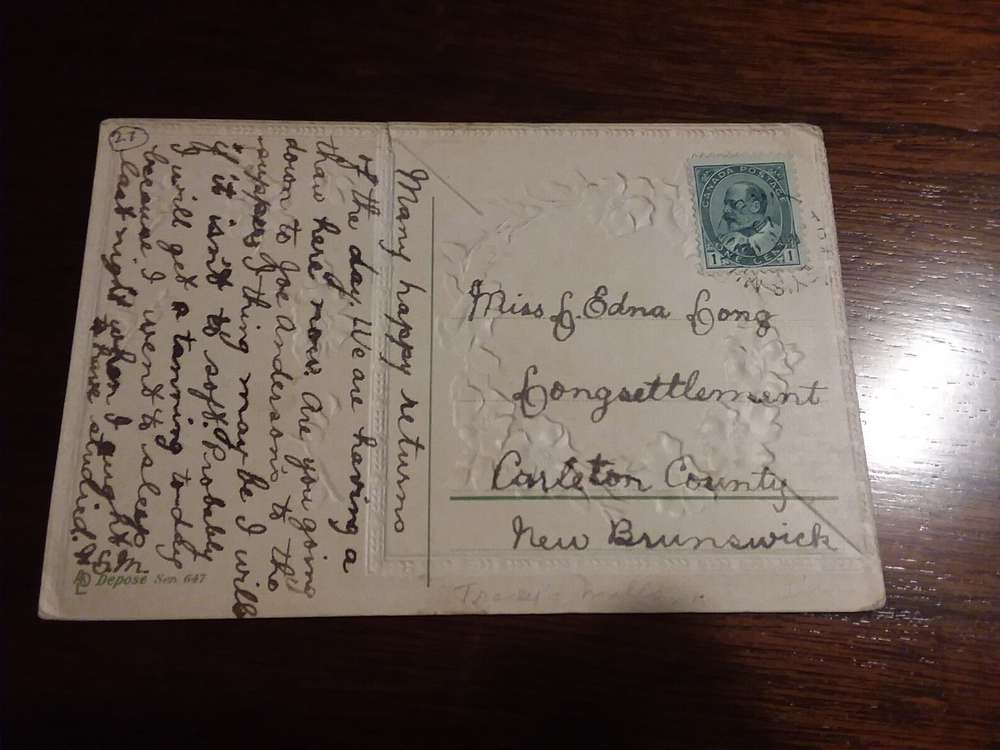 Many happy returns
of the day. We are having a
thaw here now. Are you going
down to Joe Andersons to the
supper I thing may be I will
if it isn't to soft. Probably
I will get a tanning to-day
because I went to sleep
last night when I aught
to have studied. H
S. M.
27
CANADA POSTAGE
ONE CENT
1 1
Miss L. Edna Long
Longsettlement
Carleton County
New Brunswick
Tracy's mills
Deposé Ser. 647